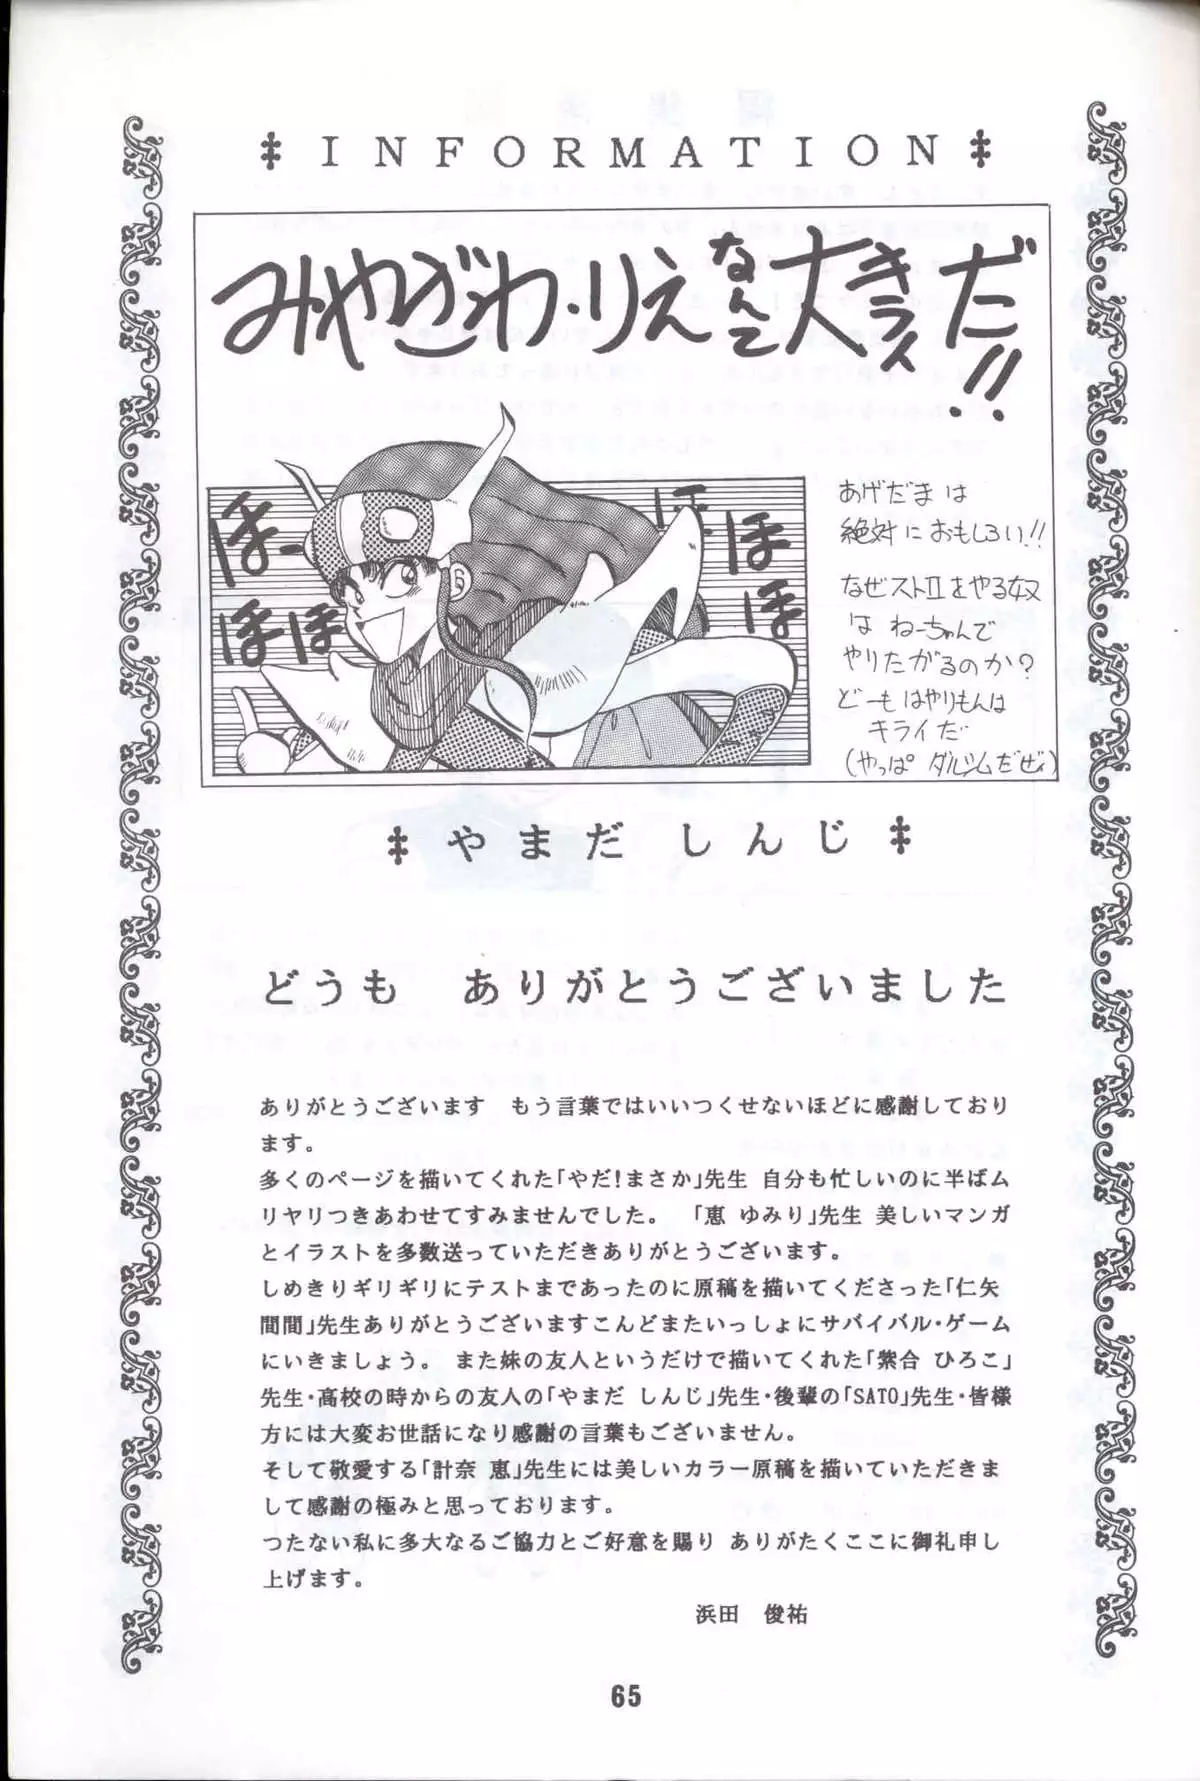 INFORMATION
みやざわ・りえなんて大キライだ!!
ほーほほほほほほ
あげだまは
絶対におもしろい!!
なぜストⅡをやる奴
は ねーちゃんで
やりたがるのか?
どーもはやりもんは
キライだ
(やっぱ ダルシムだぜ)
やまだ しんじ
どうも ありがとうございました
ありがとうございます もう言葉ではいいつくせないほどに感謝しており
ます。
多くのページを描いてくれた「やだ!まさか」先生 自分も忙しいのに半ばム
リヤリつきあわせてすみませんでした。 「恵 ゆみり」先生 美しいマンガ
とイラストを多数送っていただきありがとうございます。
しめきりギリギリにテストまであったのに原稿を描いてくださった「仁矢
間間」先生ありがとうございますこんどまたいっしょにサバイバル・ゲーム
にいきましょう。 また妹の友人というだけで描いてくれた「紫合 ひろこ」
先生・高校の時からの友人の「やまだ しんじ」先生・後輩の「SATO」先生・皆様
方には大変お世話になり感謝の言葉もございません。
そして敬愛する「計奈 恵」先生には美しいカラー原稿を描いていただきま
して感謝の極みと思っております。
つたない私に多大なるご協力とご好意を賜り ありがたくここに御礼申し
上げます。
浜田 俊祐
65